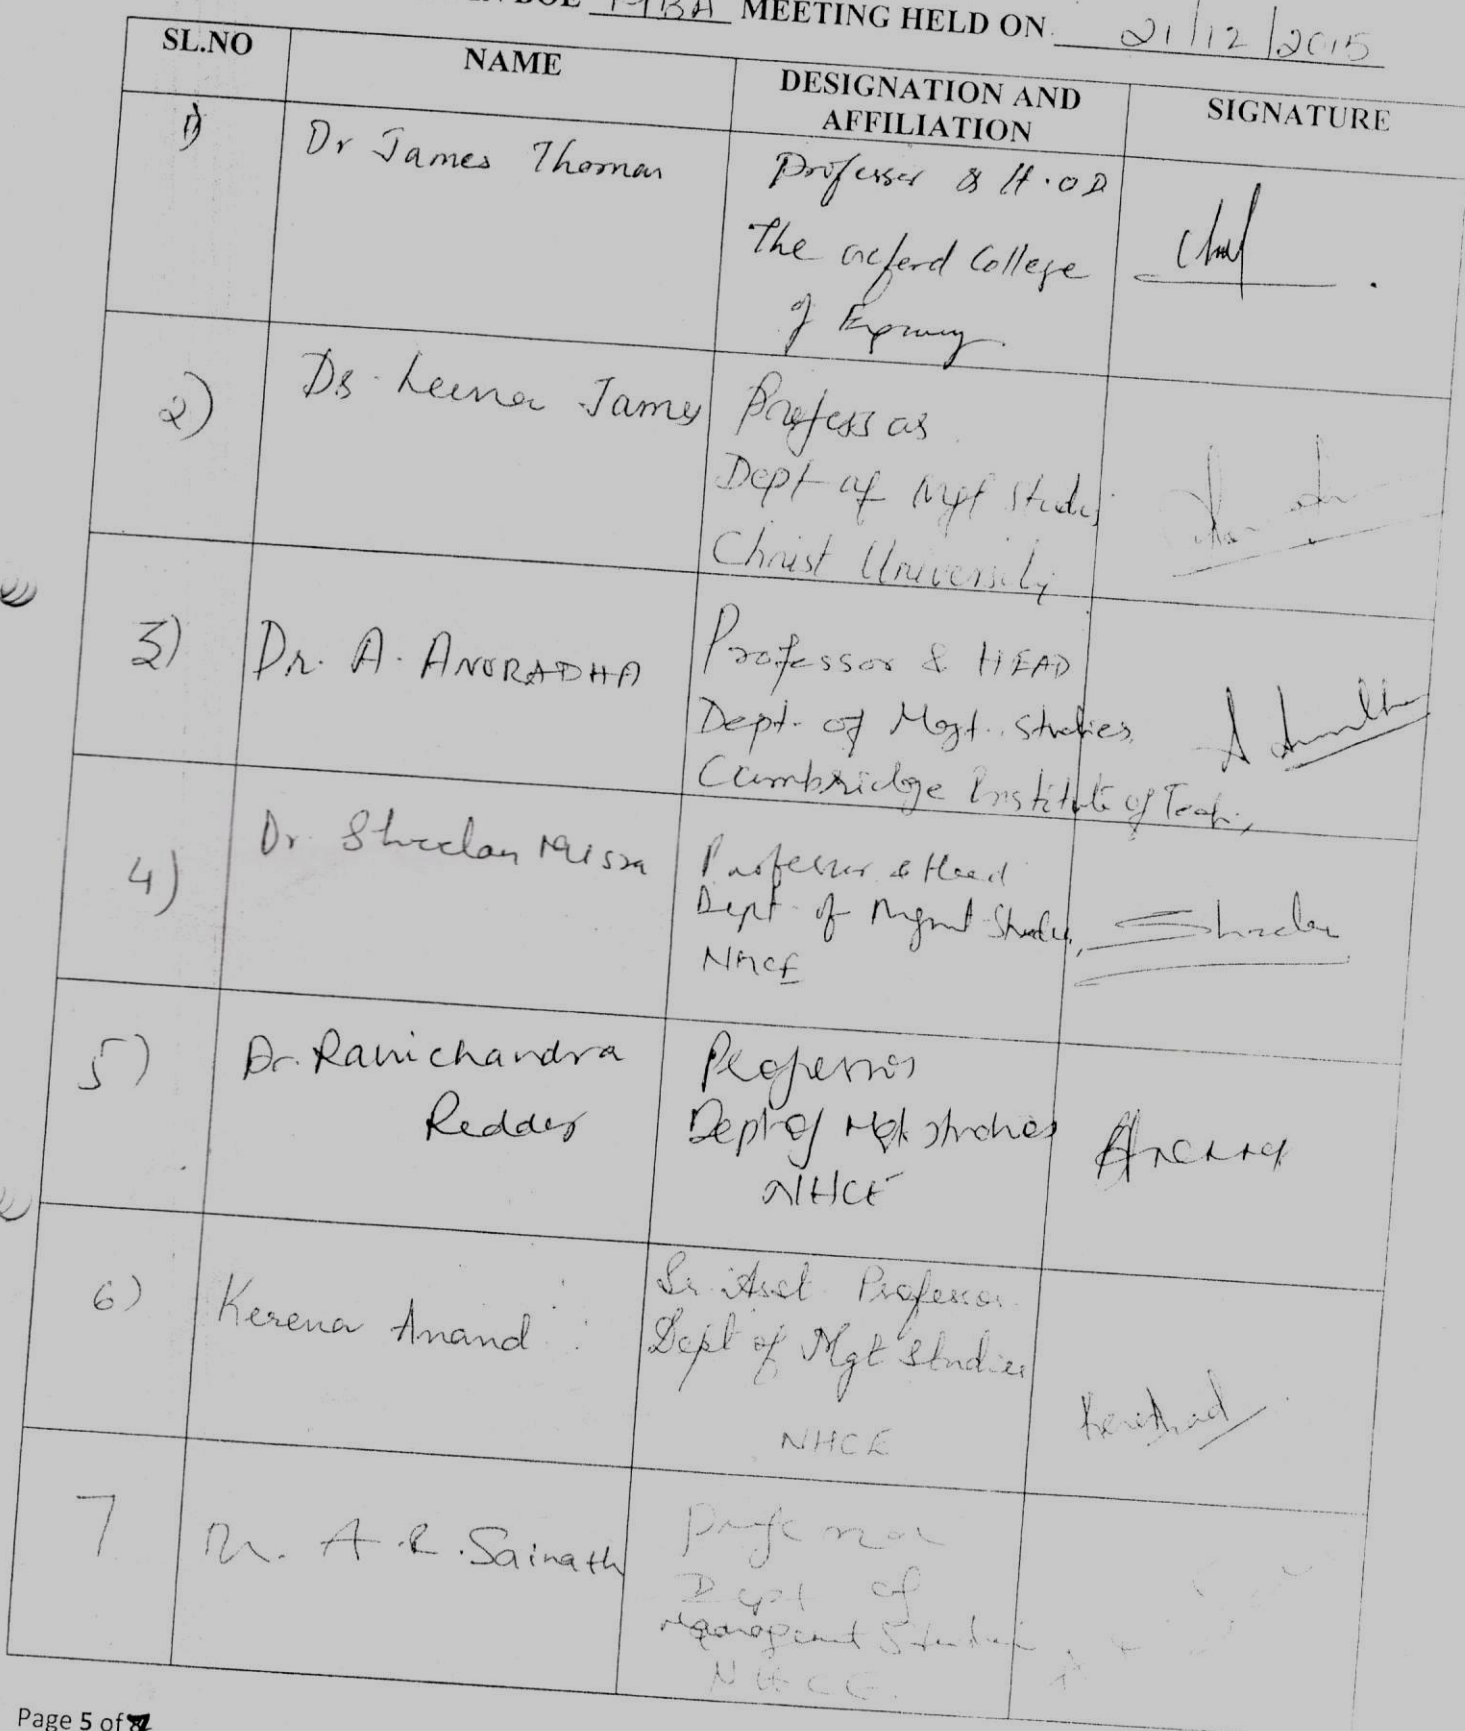 BOE MBA MEETING HELD ON. 21/12/2015
SL.NO NAME DESIGNATION AND AFFILIATION SIGNATURE
1) Dr James Thomas Professor & H.O.D
The oxford College
of
2) Dr. Leena James Professor
Dept of Mgt Studies
Christ University
3) Dr. A. ANURADHA Professor & HEAD
Dept. of Mgt. Studies
Cambridge Institute of Tech.,
4) Dr. Misra Professor & Head
Dept. of Mgmt Studies,
NHCE
5) Dr. Ravichandra Professor
Reddy Dept of Mgt studies
NHCE
6) Kerena Anand Sr. Asst Professor
Dept of Mgt Studies
NHCE
7 Dr. A.R. Sainath Professor
Dept of
Management Studies
NHCE.
Page 5 of